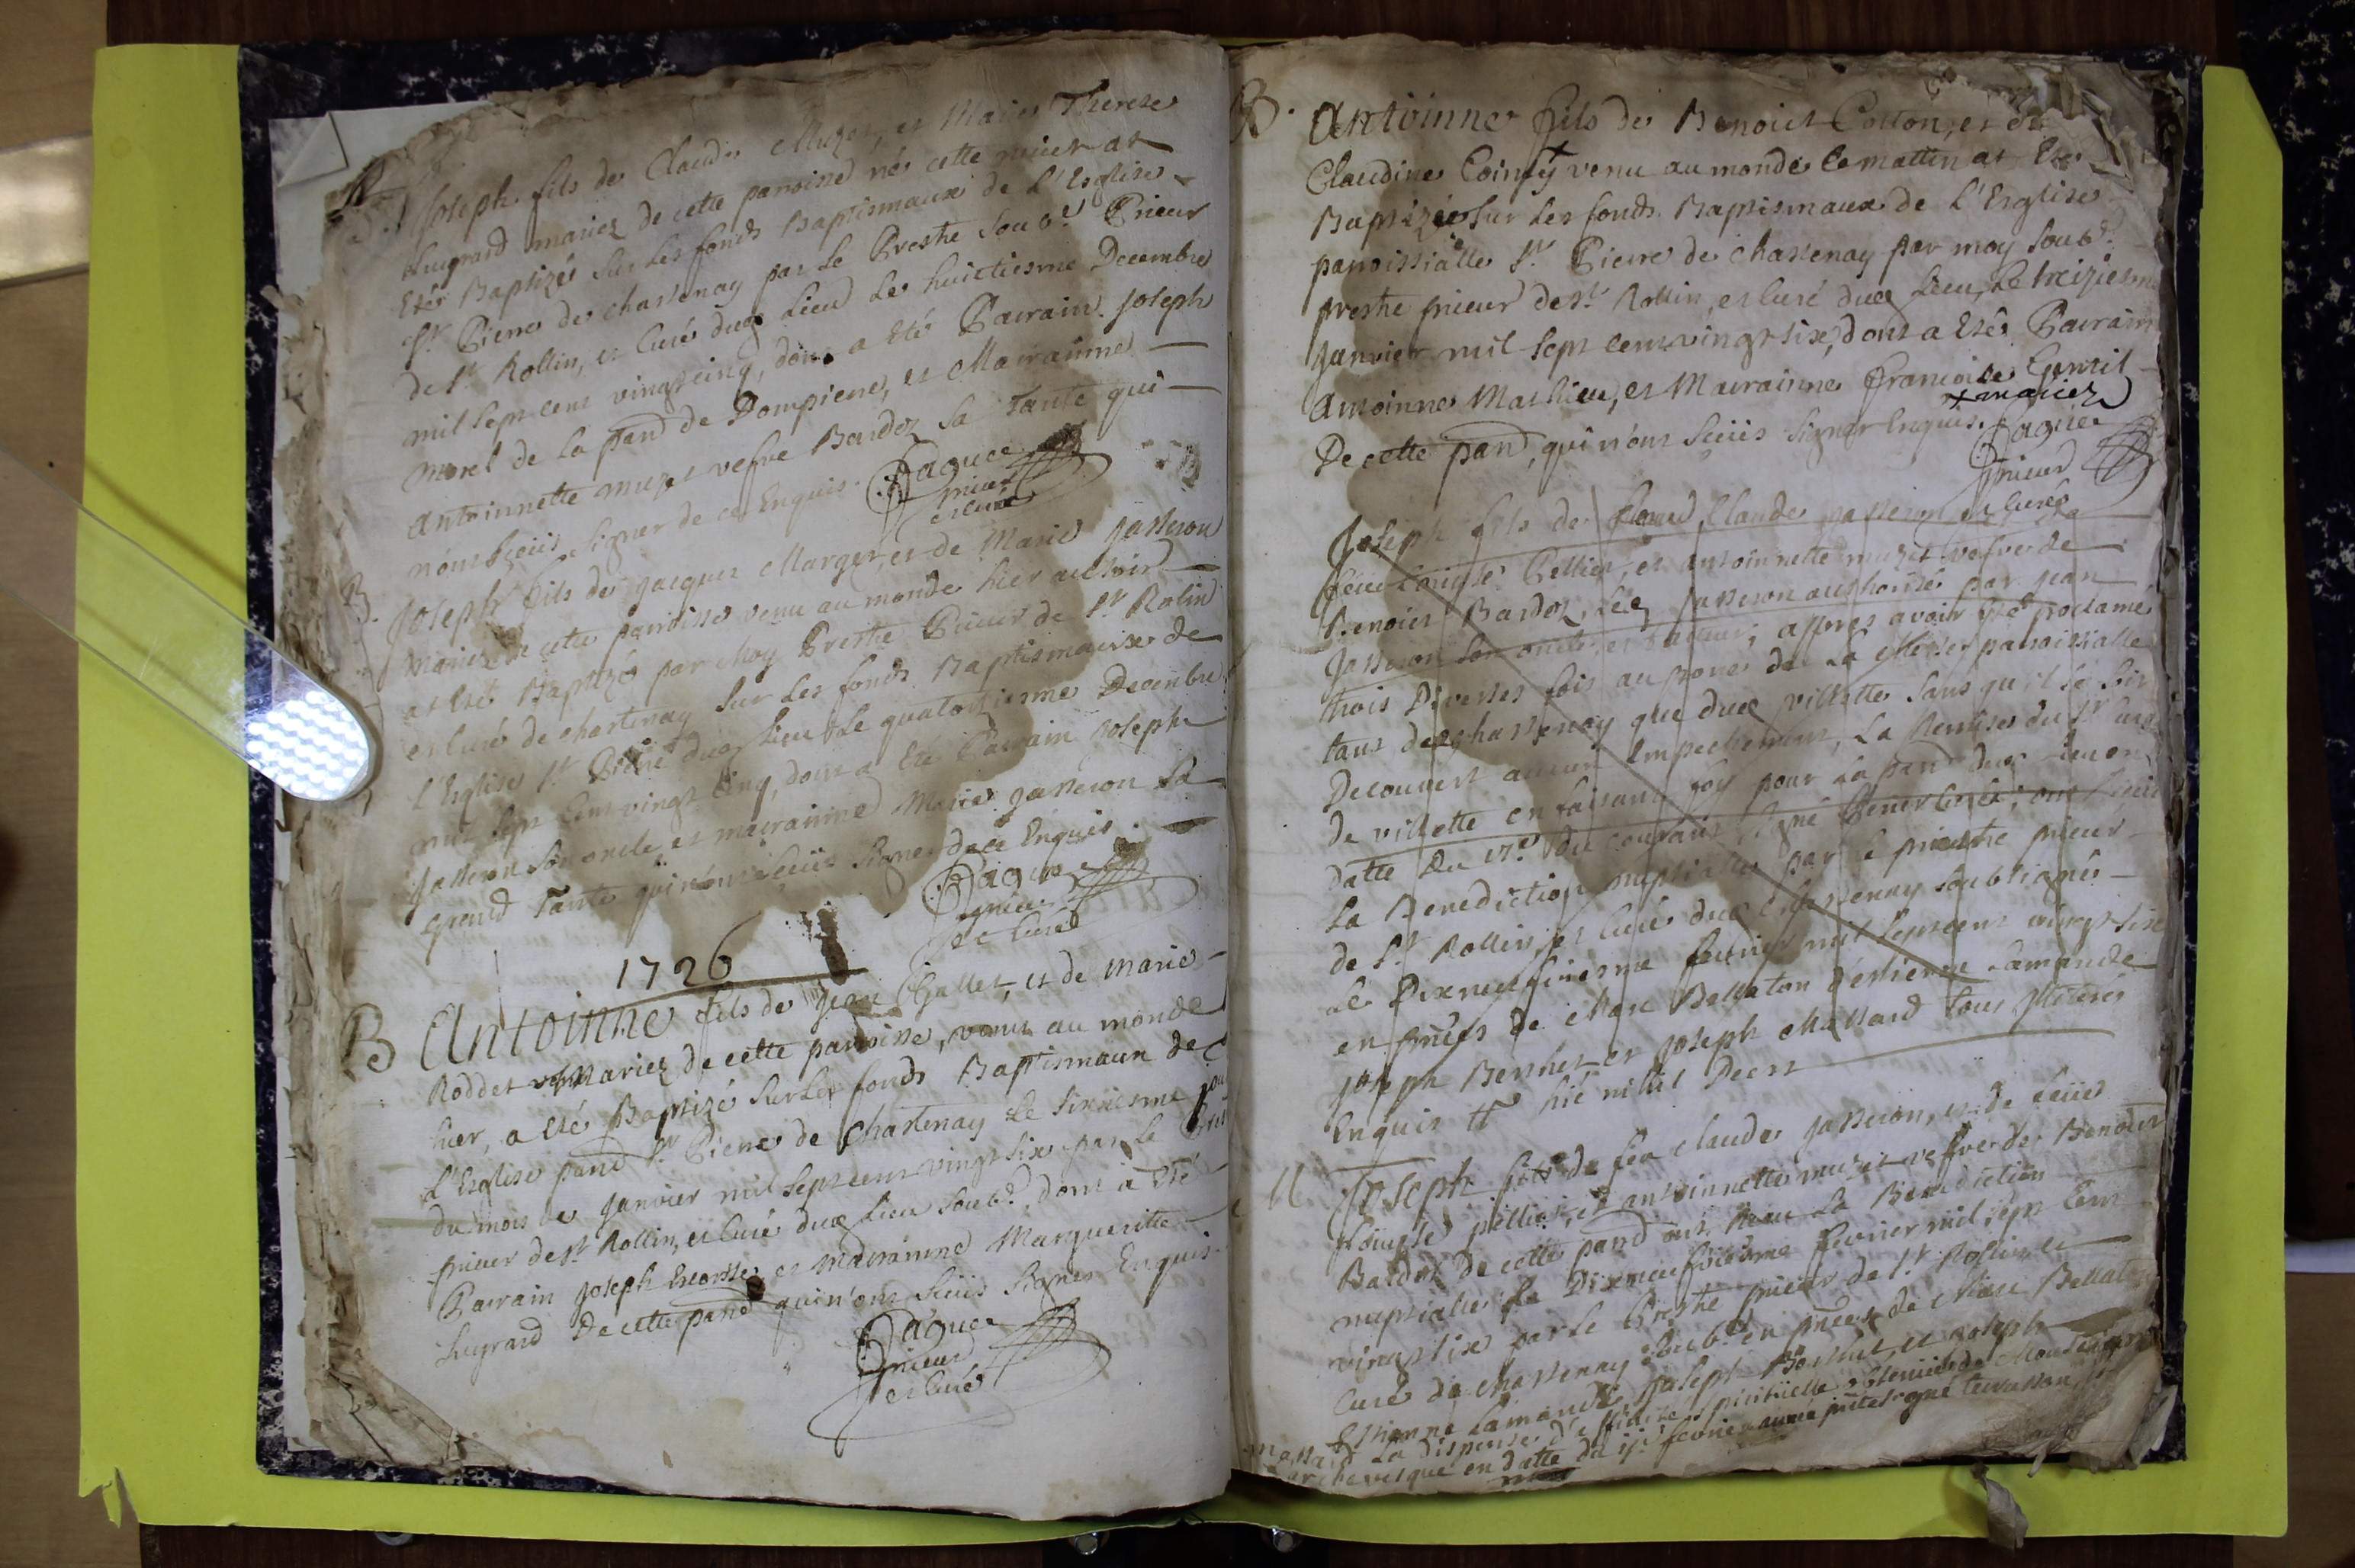 B. Joseph fils de Claude Muzet, et Marie Therese
Lugrand mariez de cette paroisse né cette nuict at
Eté Baptizé sur Les fonds Baptismaux de L'Esglise
St. Pierre de chastenay par Le Prestre soub.é Prieur
de St. Rollin, et Curé dud. Lieu Le huictiesme Decembre
mil sept cent vingt cinq, dont a Eté Parrain Joseph
morel de La parr. de Dompierre, et Marrainne
Antoinnette muzet vefve Bardoz sa Tante qui
n'ont sçeüs signer de ce Enquis. Dagues
prieur
et curé
B. Joseph fils de Jacques Marger, et de Marie Jasseron
Mariez de cette paroisse venu au monde hier au soir
at Eté Baptizé par Moy Prestre Prieur de St. Rolin
et Curé de chastenay sur Les fonds Baptismaux de
L'Esglise St. Pierre dud. Lieu Le quatorziesme Decembre
mil sept cent vingt cinq, dont a Eté Parrain Joseph
Jasseron son oncle, et marrainne Marie Jasseron sa
grand Tante qui n'ont sçeüs signer de ce Enquis.
Dagues
prieur
et Curé
1726
B Antoinne fils de Jean Challet, et de Marie
Roddet mariez de cette paroisse, venu au monde
hier, a Eté Baptizé sur Les fonds Baptismaux de
L'Esglise parr. St. Pierre de Chastenay Le sixiesme jour
du mois de Janvier mil sept cent vingt six par Le
prieur de St. Rollin, et Curé dud. Lieu soub.é, dont a Eté
Parrain Joseph et Madrainne Margueritte
Lugrand De cette parr. qui n'ont sçeüs signer Enquis.
Dagues
Prieur
et Curé
B. Antoinne fils de Benoict Cotton, et de
Claudine Coinsy + venu au monde ce mattin at Eté
Baptizé sur Les fonds Baptismaux de L'Esglise
parroissialle St. Pierre de Chastenay par moy soub.é
prestre prieur de St. Rollin, et Curé dud. Lieu, Le treiziesme
Janvier mil sept cent vingt six, dont a Eté Parrain
Antoinne Mathieu, et Marrainne Francoise Gentil
+ mariez
De cette parr., qui n'ont sçeüs signer Enquis. Dagues
prieur
et Curé
Joseph fils de Claude Jasseron
Pellier, et antoinnette muzet vefve de
Benoict Bardoz, Led. Jasseron authorisé par jean
Jasseron son oncle, et Tuteur; appres avoir eté proclamé
trois Diverses fois au prone de La Messe parroissialle
tant de Chastenay que dud. villette sans qu'il se soit
Decouvert aucun Empechement, La Remise du Sr. Curé
de villette en faisant foy pour La parr. dud. Lieu en
datte Du 17.e du courant signé ont Reçu
La Benediction nuptialle par Le prestre prieur
de St. Rollin, et Curé dud. Chastenay soubsigné
Le Dixneufviesme fevrier mil sept cent vingt six
en pñces de Marc Bellaton d'estienne Lamande
Joseph Berthet et Joseph Massard
Enquis hic nihil Deest
M. Joseph fils de feu Claude Jasseron, et de
Pellier, et antoinnette muzet vefve de Benoict
Bardoz De cette parr. ont Reçu La Benediction
nuptialle Le Dixneufviesme fevrier mil sept cent
vingt six par Le Prestre prieur de St. Rollin, et
Curé de Chastenay soub.é en pñces de Marc Bellaton
Estienne Lamande, Joseph Berthet, et Joseph
massard La dispense d'affinité spirituelle obtenüe de Monseigneur
archevesque en datte du fevrier année pñte signé terrasson